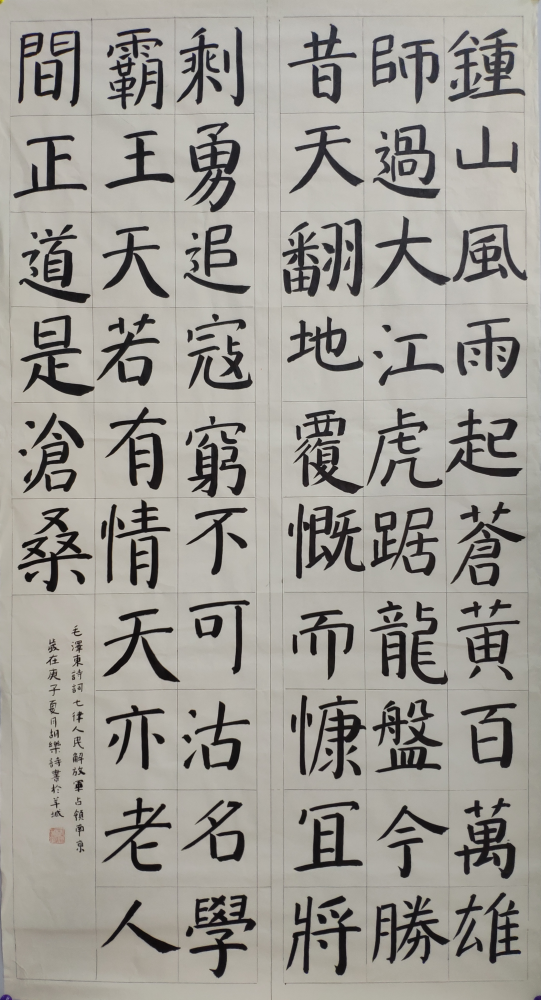 鍾山風雨起蒼黃百萬雄
師過大江虎踞龍盤今勝
昔天翻地覆慨而慷宜將
剩勇追寇窮不可沽名學
霸王天若有情天亦老人
間正道是滄桑
毛澤東詩詞七律人民解放軍占領南京
歲在庚子夏月胡樂詩書於羊城